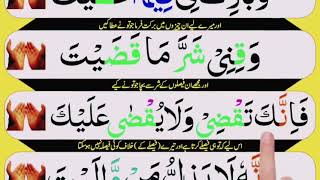 وَبَارِكْ لِيْ فِيْمَا اَعْطَيْتَ
اور میرے لیے ان چیزوں میں برکت فرما جو تو نے عطا کیں
وَقِنِيْ شَرَّ مَا قَضَيْتَ
اور مجھے ان فیصلوں کے شر سے بچا جو تو نے کیے
فَاِنَّكَ تَقْضِيْ وَلَا يُقْضٰى عَلَيْكَ
اس لیے کہ تو ہی فیصلے کرتا ہے اور تیرے (فیصلے کے) خلاف کوئی فیصلہ نہیں ہو سکتا
اِنَّهٗ لَا يَذِلُّ مَنْ وَّالَيْتَ